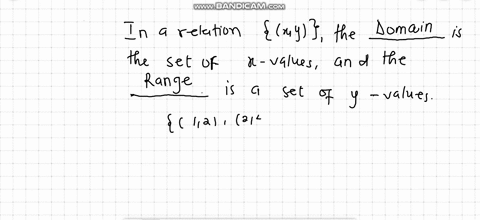 WWW.BANDICAM.COM
In a relation {(x,y)}, the Domain is
the set of x-values, and the
Range is a set of y-values.
{(1,2), (2,4